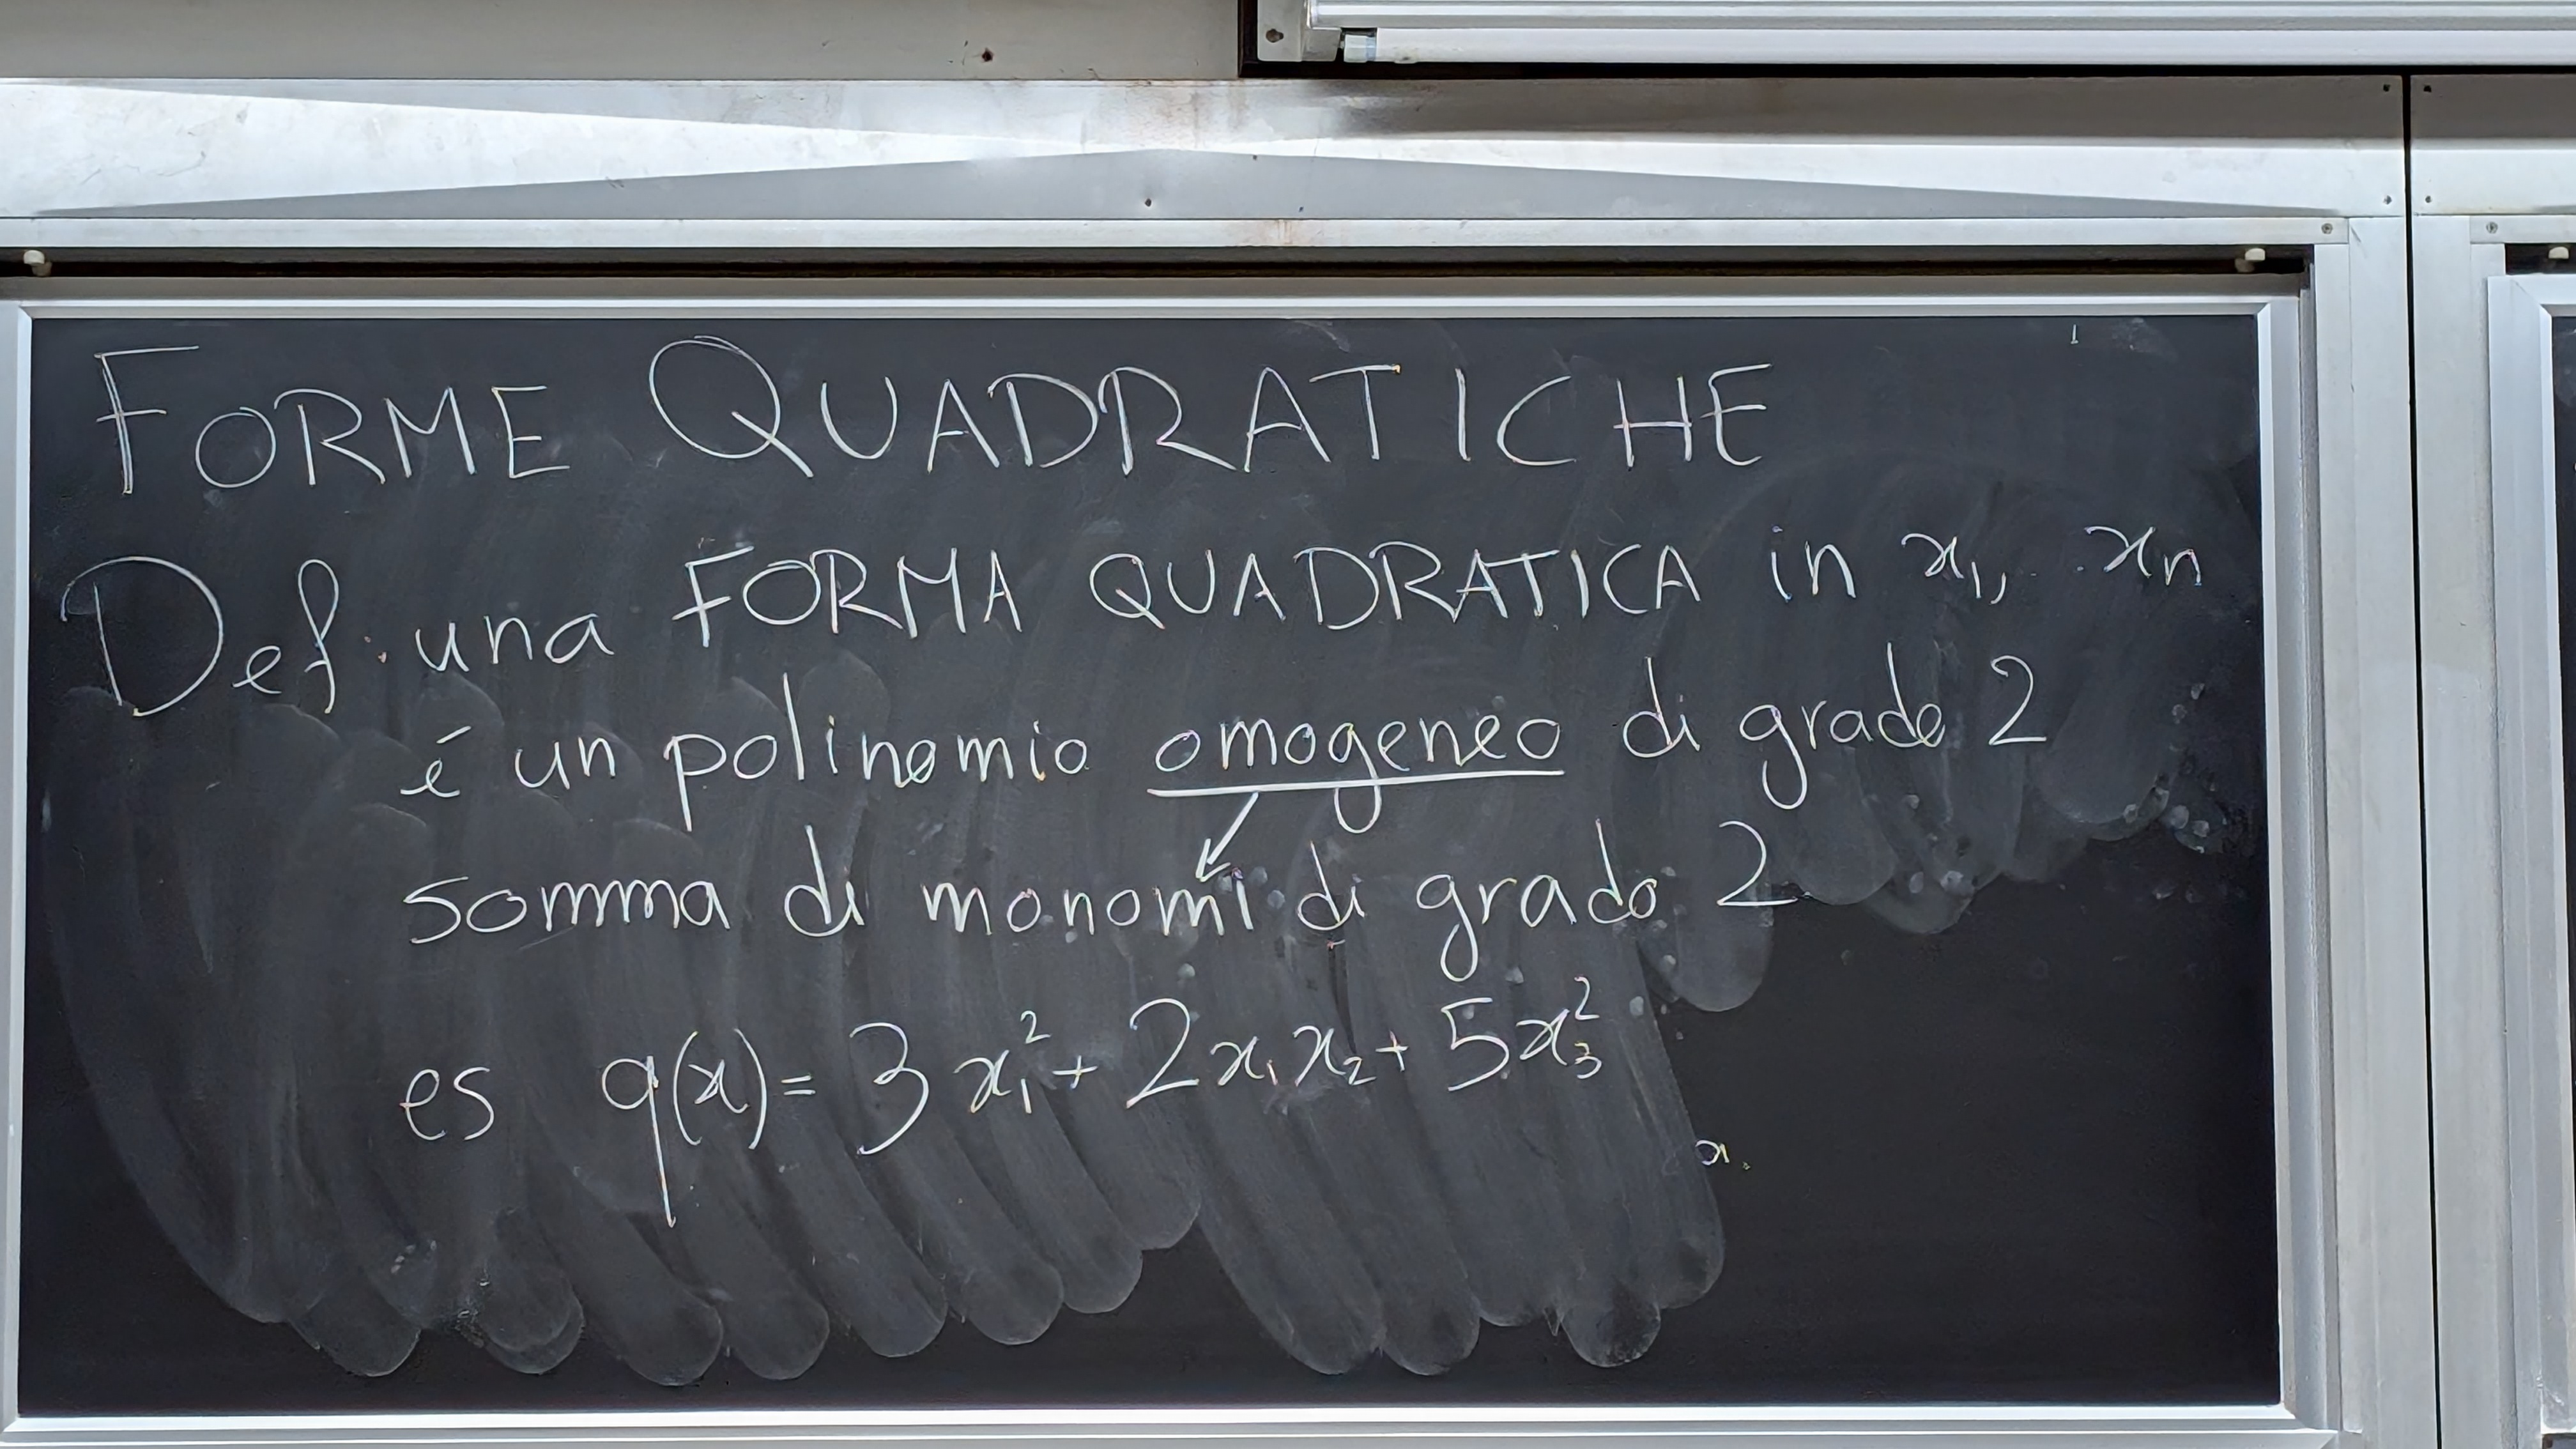 FORME QUADRATICHE
Def: una FORMA QUADRATICA in x₁, .. xₙ
é un polinomio omogeneo di grado 2
somma di monomi di grado 2
es q(x) = 3x₁² + 2x₁x₂ + 5x₃²